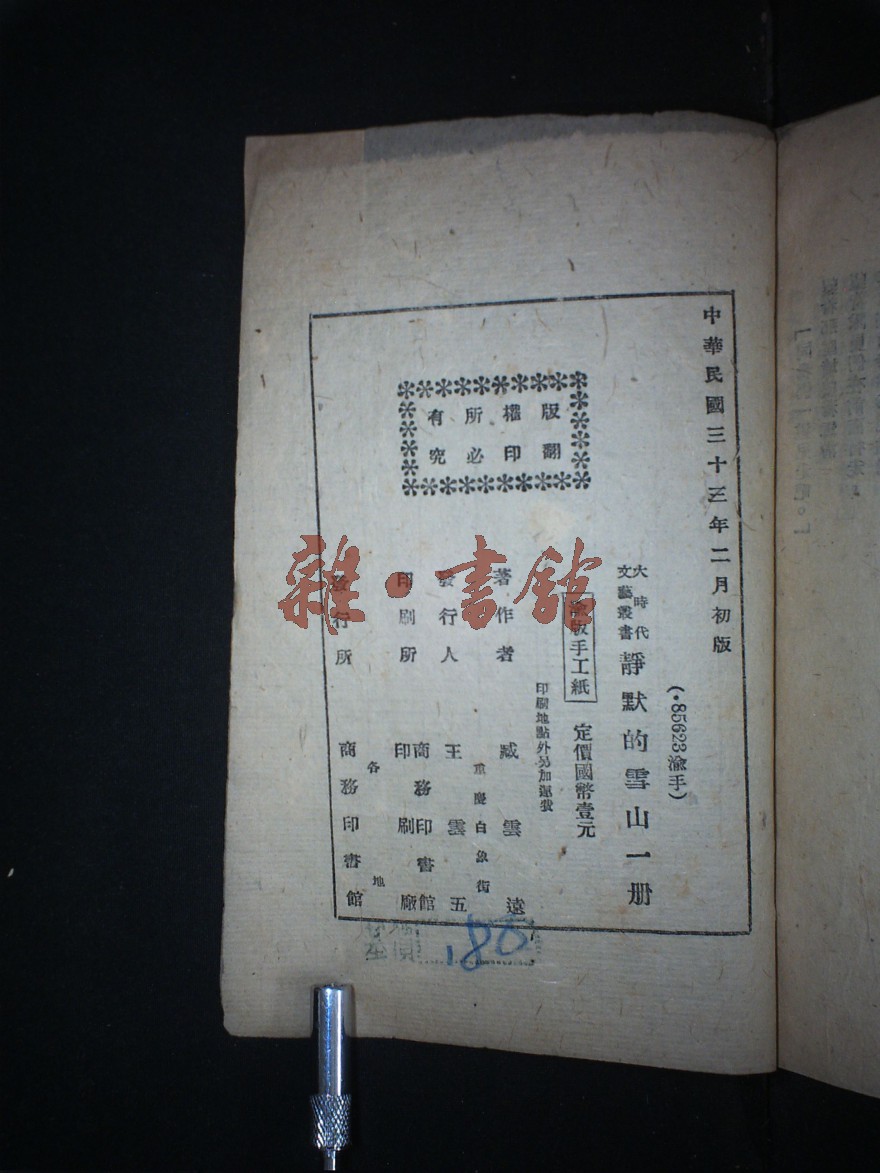 中華民國三十三年二月初版
(·85623渝手)
大時代
文藝叢書
靜默的雪山一册
渝版手工紙
定價國幣壹元
印刷地點外另加運費
著作者 臧雲遠
重慶白象街
發行人 王雲五
印刷所 商務印書館
印刷廠
各地
發行所 商務印書館
版權所有
翻印必究
雜·書館
180